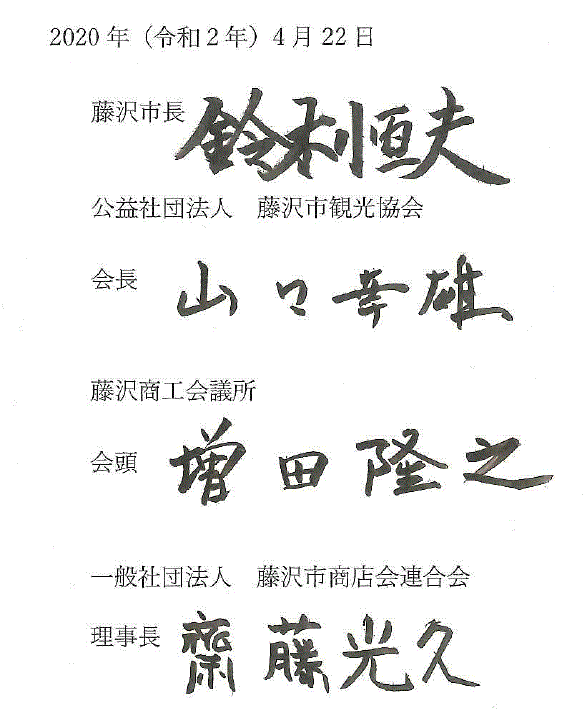 2020年（令和2年）4月22日
藤沢市長 鈴木恒夫
公益社団法人　藤沢市観光協会
会長 山口幸雄
藤沢商工会議所
会頭 増田隆之
一般社団法人　藤沢市商店会連合会
理事長 齋藤光久